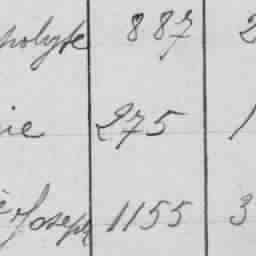 polyte 887 2
ie 275 1
Joseph 1155 3